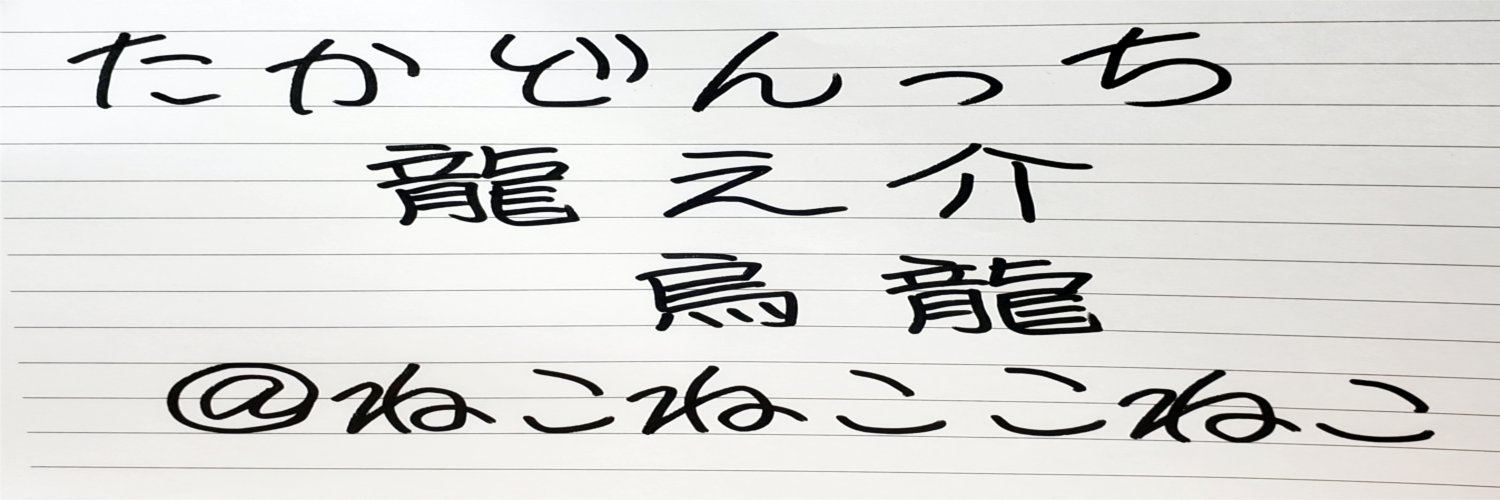 たかどんっち
龍之介
烏龍
@ねこねこここねこ